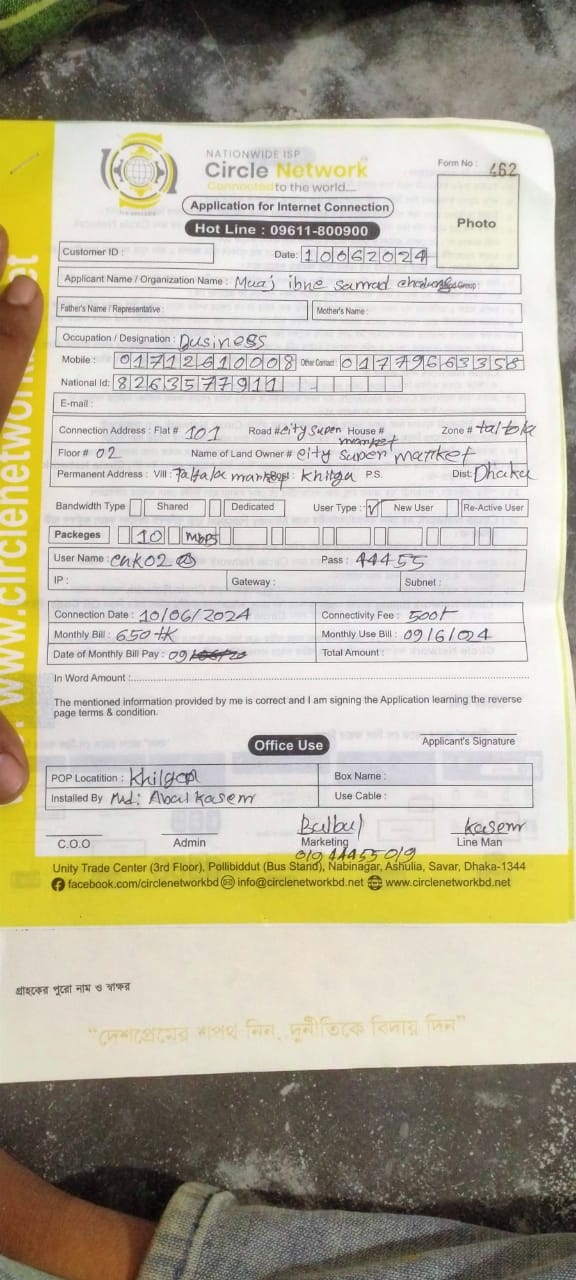 NATIONWIDE ISP
Circle Network
Connected to the world....
Form No : 462
Application for Internet Connection
Hot Line : 09611-800900
Photo
Customer ID :
Date: 10062024
Applicant Name / Organization Name : Muaj ibne Samad
Father's Name / Representative : Mother's Name :
Occupation / Designation : Business
Mobile : 01712610008 Other Contact : 01779663358
National Id: 8263577911
E-mail :
Connection Address : Flat # 101 Road # city super market House # Zone # taltola
Floor # 02 Name of Land Owner # city super market
Permanent Address : Vill : Taltala market Post : Khilga P.S. Dist: Dhaka
Bandwidth Type Shared Dedicated User Type : ✓ New User Re-Active User
Packeges 10 Mbps
User Name : Pass : 44455
IP : Gateway : Subnet :
Connection Date : 10/06/2024 Connectivity Fee : 500t
Monthly Bill : 650 tk Monthly Use Bill : 09/6/024
Date of Monthly Bill Pay : 09 Total Amount :
In Word Amount :
The mentioned information provided by me is correct and I am signing the Application learning the reverse
page terms & condition.
Applicant's Signature
Office Use
POP Locatition : Khilgaon Box Name :
Installed By Md: Abul Kasem Use Cable :
Bulbul Kasem
C.O.O Admin Marketing Line Man
01944455019
Unity Trade Center (3rd Floor), Pollibiddut (Bus Stand), Nabinagar, Ashulia, Savar, Dhaka-1344
facebook.com/circlenetworkbd info@circlenetworkbd.net www.circlenetworkbd.net
গ্রাহকের পুরো নাম ও স্বাক্ষর
"দেশপ্রেমের শপথ নিন, দুর্নীতিকে বিদায় দিন"